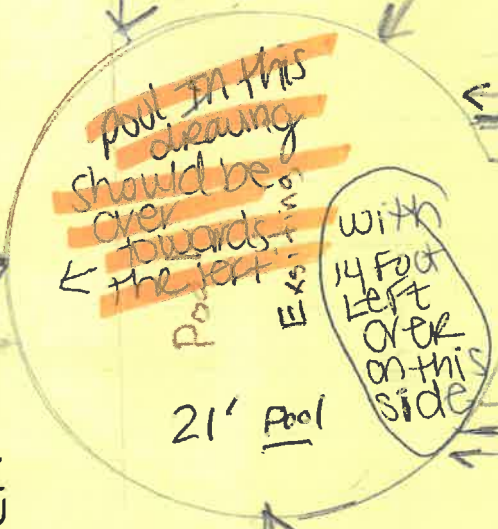 pool In this
drawing
should be
over
towards
the left
Exsiting
with
14 Foot
Left
over
on this
side
21' Pool